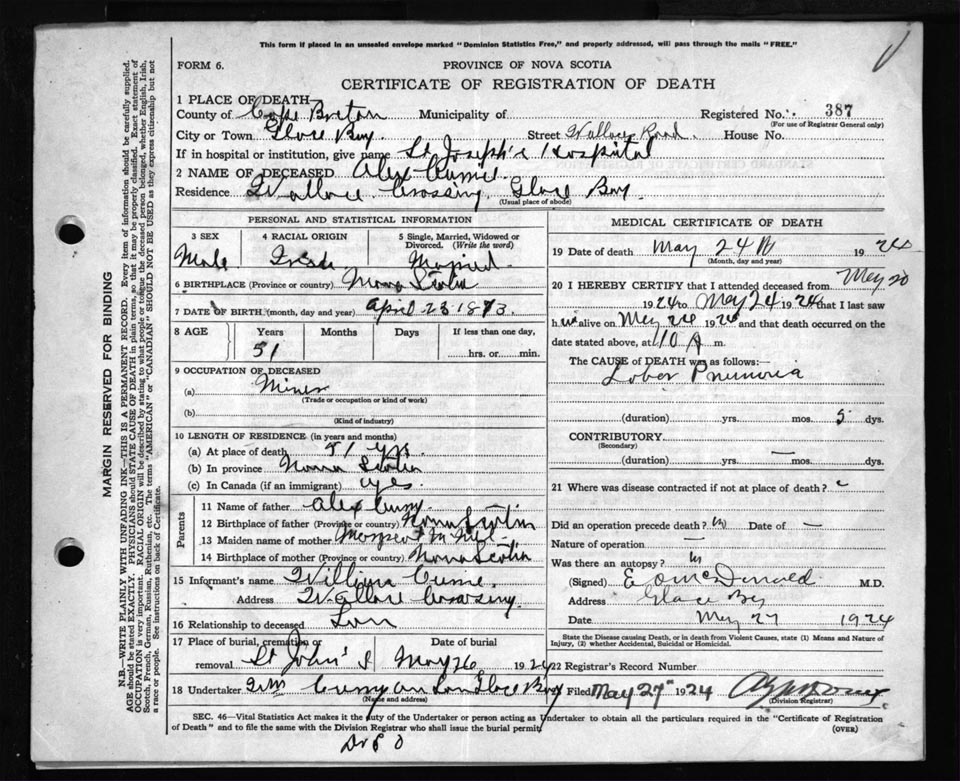 This form if placed in an unsealed envelope marked "Dominion Statistics Free," and properly addressed, will pass through the mails "FREE."
FORM 6.
PROVINCE OF NOVA SCOTIA
CERTIFICATE OF REGISTRATION OF DEATH
1 PLACE OF DEATH
County of Cape Breton Municipality of Registered No. 387
(For use of Registrar General only)
City or Town Glace Bay Street Wallace Road House No.
If in hospital or institution, give name St Joseph's Hospital
2 NAME OF DECEASED Alex Currie
Residence Wallace Crossing, Glace Bay
(Usual place of abode)
PERSONAL AND STATISTICAL INFORMATION
3 SEX 4 RACIAL ORIGIN 5 Single, Married, Widowed or Divorced. (Write the word)
Male Married
6 BIRTHPLACE (Province or country) Nova Scotia
7 DATE OF BIRTH (month, day and year) April 23 1873.
8 AGE Years Months Days If less than one day,
51 hrs. or min.
9 OCCUPATION OF DECEASED
(a) Miner
(Trade or occupation or kind of work)
(b)
(Kind of industry)
10 LENGTH OF RESIDENCE (in years and months)
(a) At place of death 51 yrs
(b) In province Nova Scotia
(c) In Canada (if an immigrant) yes
Parents
11 Name of father Alex
12 Birthplace of father (Province or country) Nova Scotia
13 Maiden name of mother Margaret McNeil
14 Birthplace of mother (Province or country) Nova Scotia
15 Informant's name William Currie
Address Wallace Crossing.
16 Relationship to deceased Son
17 Place of burial, cremation or removal Date of burial
St John's May 26 1924
18 Undertaker Wm and Son Glace Bay
(Name and address)
MEDICAL CERTIFICATE OF DEATH
19 Date of death May 24th 1924
(Month, day and year)
20 I HEREBY CERTIFY that I attended deceased from May 20
1924 to May 24 1924 that I last saw
him alive on May 24 1924 and that death occurred on the
date stated above, at 10 A m.
The CAUSE of DEATH was as follows:—
Lobar Pneumonia
(duration) yrs. mos. 5 dys.
CONTRIBUTORY
(Secondary)
(duration) yrs. — mos. dys.
21 Where was disease contracted if not at place of death?
Did an operation precede death? no Date of —
Nature of operation —
Was there an autopsy? no
(Signed) McDonald M.D.
Address Glace Bay
Date May 27 1924
State the Disease causing Death, or in death from Violent Causes, state (1) Means and Nature of Injury, (2) whether Accidental, Suicidal or Homicidal.
22 Registrar's Record Number
Filed May 27 1924
(Division Registrar)
SEC. 46—Vital Statistics Act makes it the duty of the Undertaker or person acting as Undertaker to obtain all the particulars required in the "Certificate of Registration
of Death" and to file the same with the Division Registrar who shall issue the burial permit. (OVER)
MARGIN RESERVED FOR BINDING
N.B.—WRITE PLAINLY WITH UNFADING INK—THIS IS A PERMANENT RECORD. Every item of information should be carefully supplied.
AGE should be stated EXACTLY. PHYSICIANS should STATE CAUSE OF DEATH in plain terms, so that it may be properly classified. Exact statement of
OCCUPATION is very important. RACIAL ORIGIN will be described by stating to what people or tongue the deceased person belonged, whether English, Irish,
Scotch, French, German, Russian, Ruthenian, etc. The terms "AMERICAN" or "CANADIAN" SHOULD NOT BE USED as they express citizenship but not
a race or people. See instructions on back of Certificate.